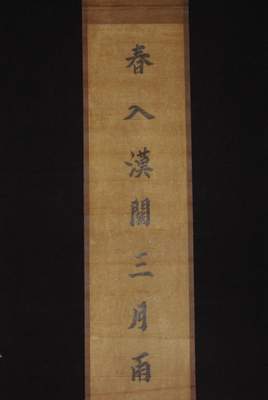 春入漢關三月雨